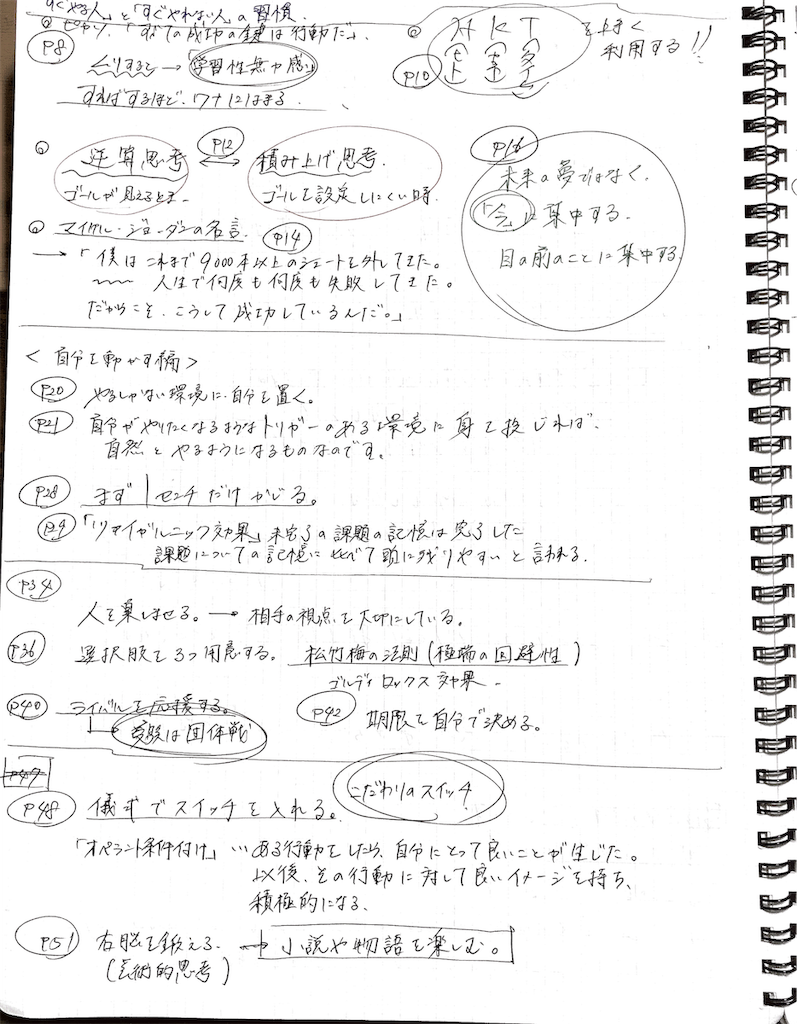 すぐやる人」と「すぐやれない人」の習慣.
「すべての成功の鍵は行動だ」.
P8
→「学習性無力感」
すればするほど、ワナにはまる.
HKT を上手く
ヒト キ タイ
利用する!!
P10
逆算思考 ↔ 積み上げ思考.
P12
ゴールが見えるとき ゴールを設定しにくい時.
P16
未来の夢ではなく、
「今」に集中する.
目の前のことに集中する
マイケル・ジョーダンの名言. P14
→「僕はこれまで9000本以上のシュートを外してきた。
人生で何度も何度も失敗してきた。
だからこそ、こうして成功しているんだ。」
<自分を動かす編>
P20 やるしかない環境に自分を置く。
P21 自分がやりたくなるようなトリガーのある環境に身を投じれば、
自然とやるようになるものなのです。
P28 まず1センチだけかじる。
P29 「ツァイガルニック効果」未完了の課題の記憶は完了した
課題についての記憶に比べて頭に残りやすいと言われる.
P34
人を楽しませる。→ 相手の視点を大切にしている。
P36 選択肢を3つ用意する。松竹梅の法則(極端の回避性)
ゴルディロックス効果
P40 ライバルを応援する。
受験は団体戦
P42 期限を自分で決める。
P47
P48 儀式でスイッチを入れる。
こだわりのスイッチ
「オペラント条件付け」…ある行動をしたら、自分にとって良いことが生じた。
以後、その行動に対して良いイメージを持ち、
積極的になる.
P51 右脳を鍛える. → 小説や物語を楽しむ。
(芸術的思考)